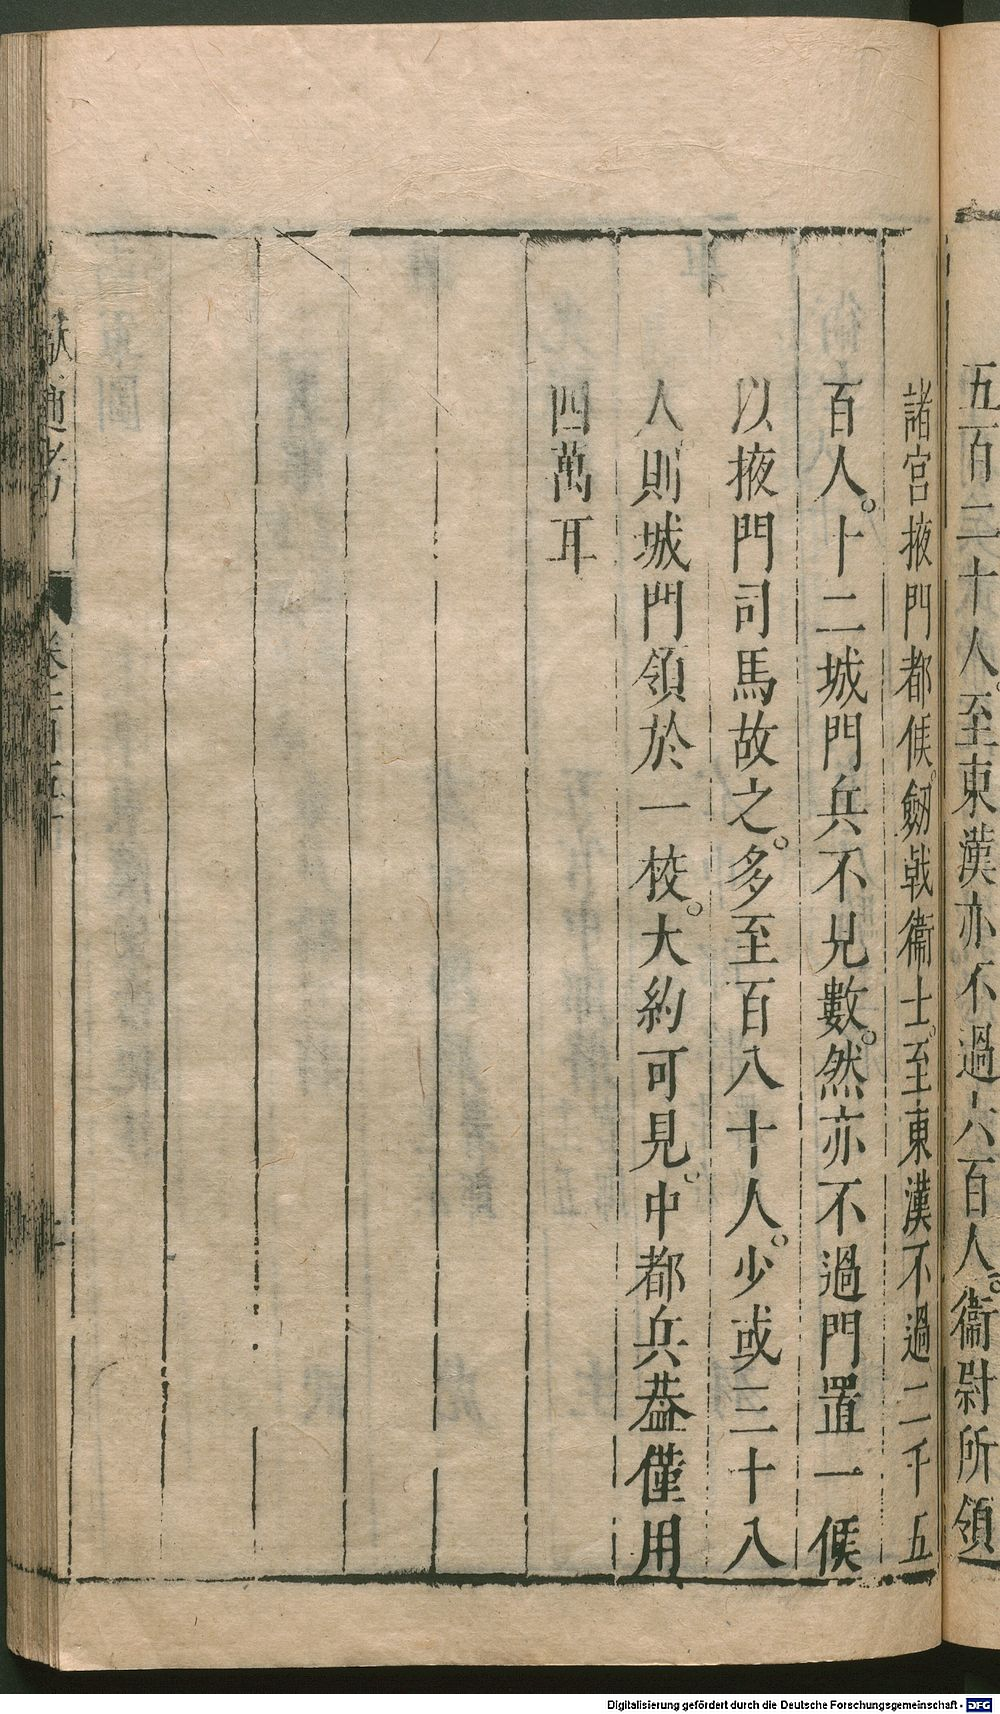 五百二十人。至東漢亦不過六百人。衞尉所領
諸宮掖門都候。劒戟衞士。至東漢不過二千五
百人。十二城門兵不見數。然亦不過門置一候
以掖門司馬故之。多至百八十人。少或三十八
人。則城門領於一校。大約可見。中都兵葢僅用
四萬耳
獻通考
Digitalisierung gefördert durch die Deutsche Forschungsgemeinschaft - DFG